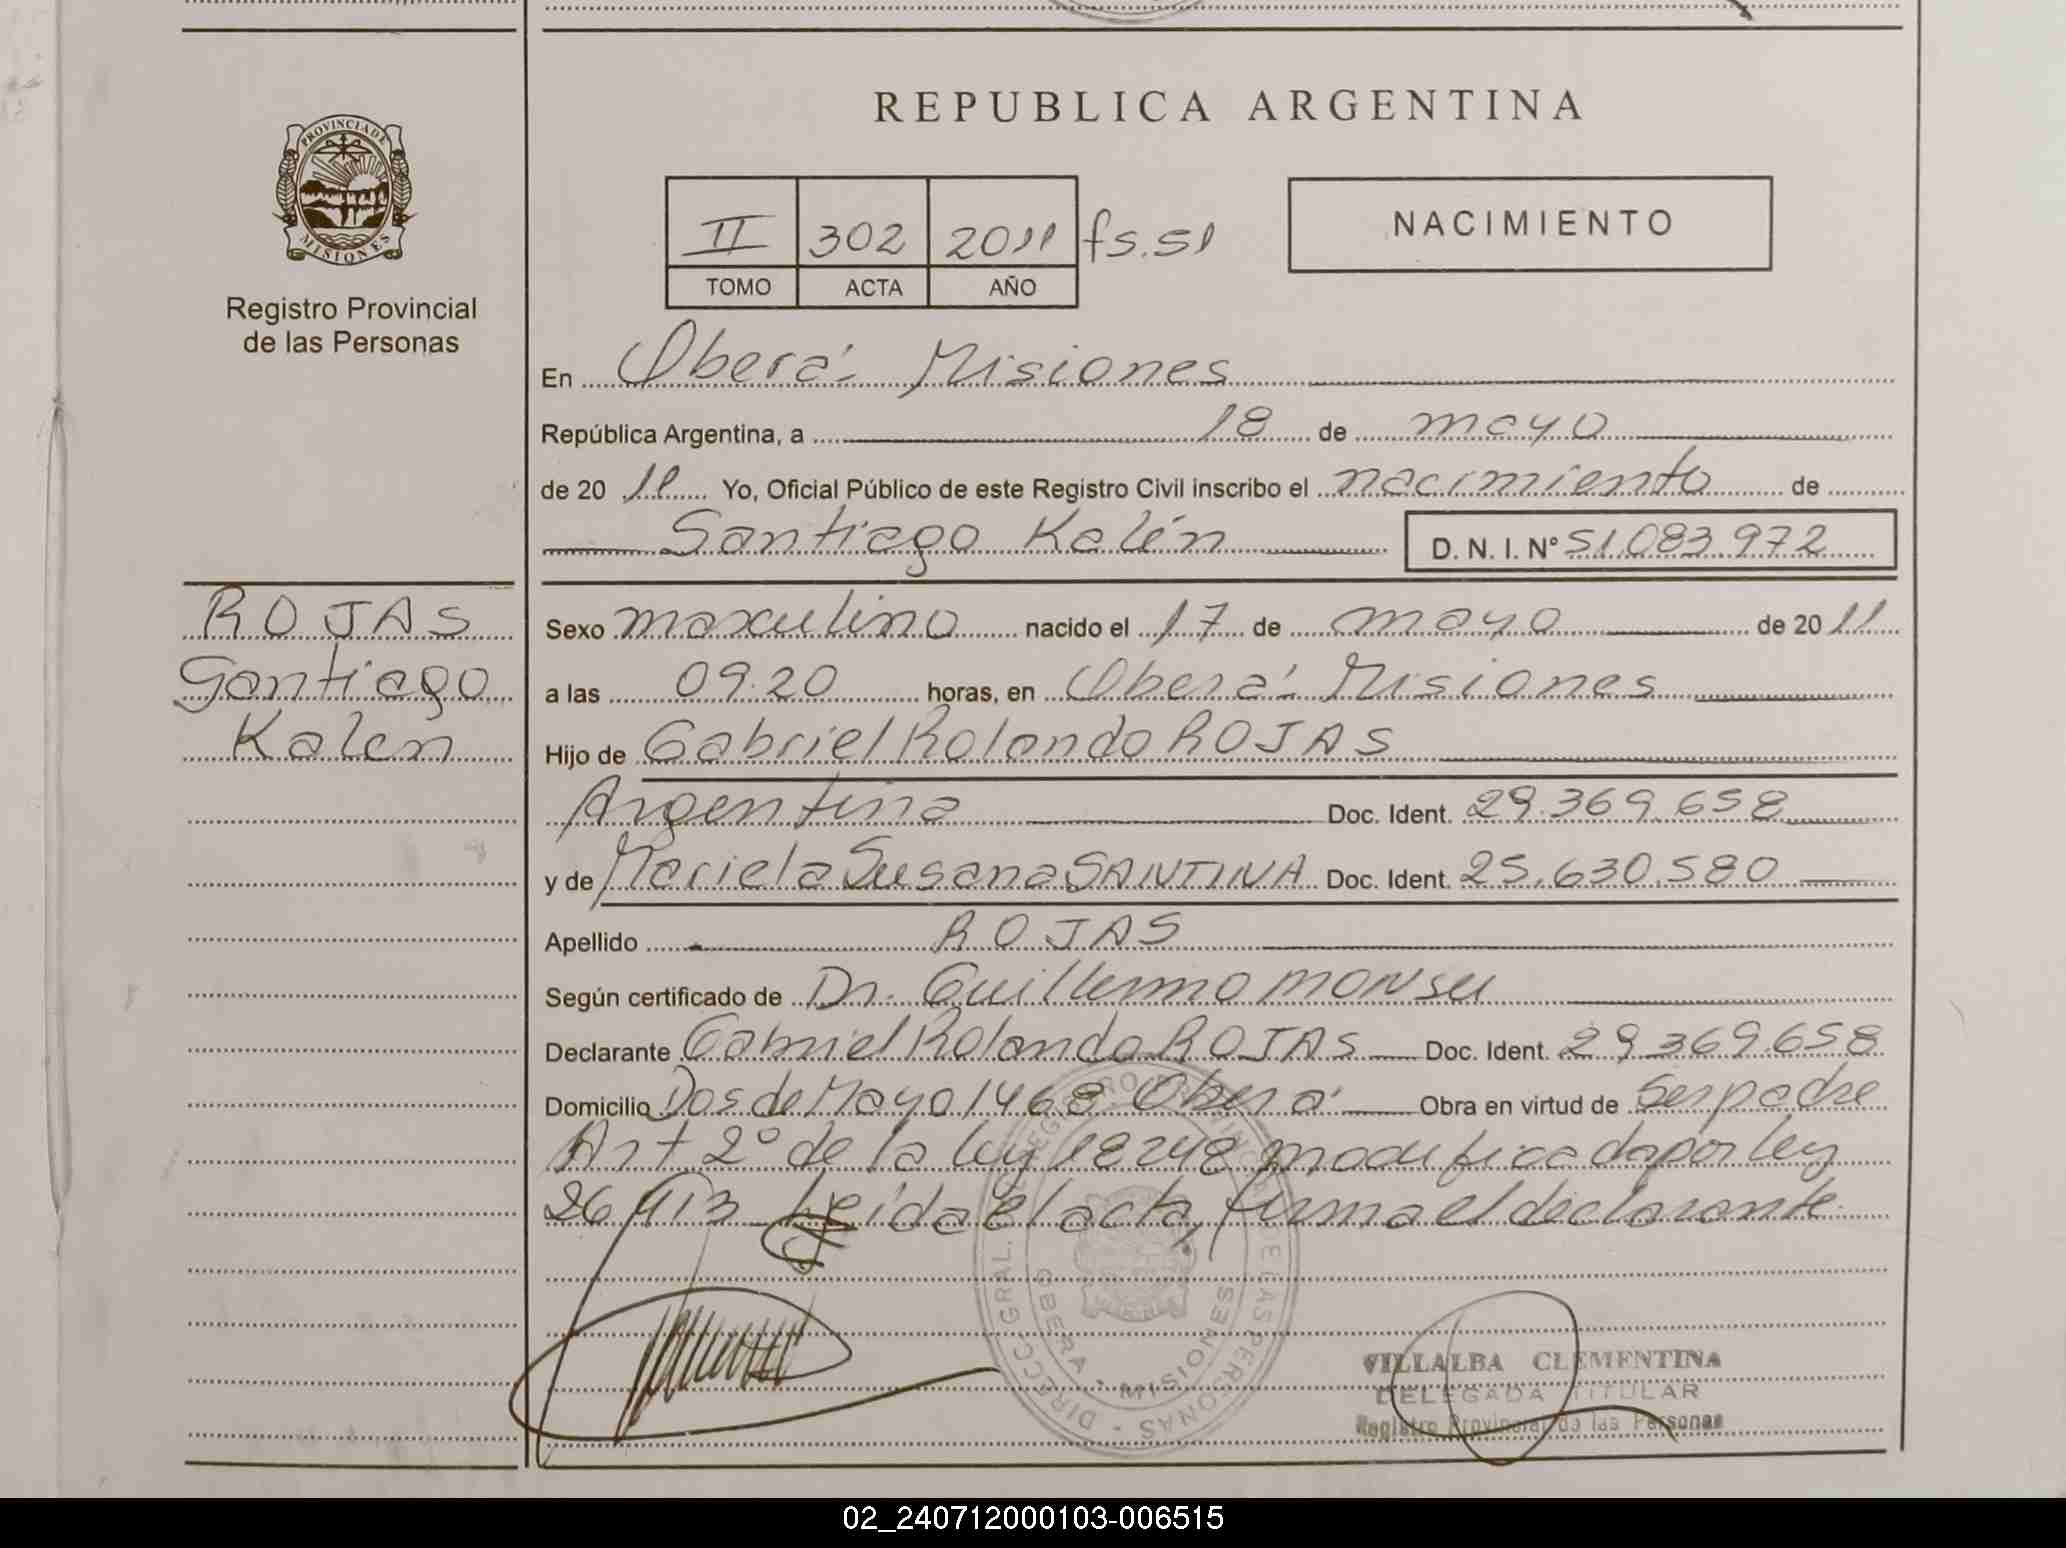 PROVINCIA DE
MISIONES
Registro Provincial
de las Personas
REPUBLICA ARGENTINA
II 302 2011 fs.51
TOMO ACTA AÑO
NACIMIENTO
En Oberá Misiones
República Argentina, a 18 de mayo
de 2011 Yo, Oficial Público de este Registro Civil inscribo el nacimiento de
Santiago Kalén D. N. I. Nº 51.083.972
ROJAS
Santiago
Kalen
Sexo masculino nacido el 17 de mayo de 2011
a las 09.20 horas, en Oberá Misiones
Hijo de Gabriel Rolando ROJAS
Argentina Doc. Ident. 29.369.658
y de Mariela Susana SANTINA Doc. Ident. 25.630.580
Apellido ROJAS
Según certificado de Dr. Guillermo
Declarante Gabriel Rolando ROJAS Doc. Ident. 29.369.658
Domicilio Dos de Mayo 1468 Oberá Obra en virtud de Ser padre
Art 2º de la ley 18248 modificada por ley
26413 Leída el acta, firma el declarante
DIRECC. GRAL. REGISTRO PROVINCIAL DE LAS PERSONAS
OBERA - MISIONES
VILLALBA CLEMENTINA
DELEGADA TITULAR
Registro Provincial de las Personas
02_240712000103-006515